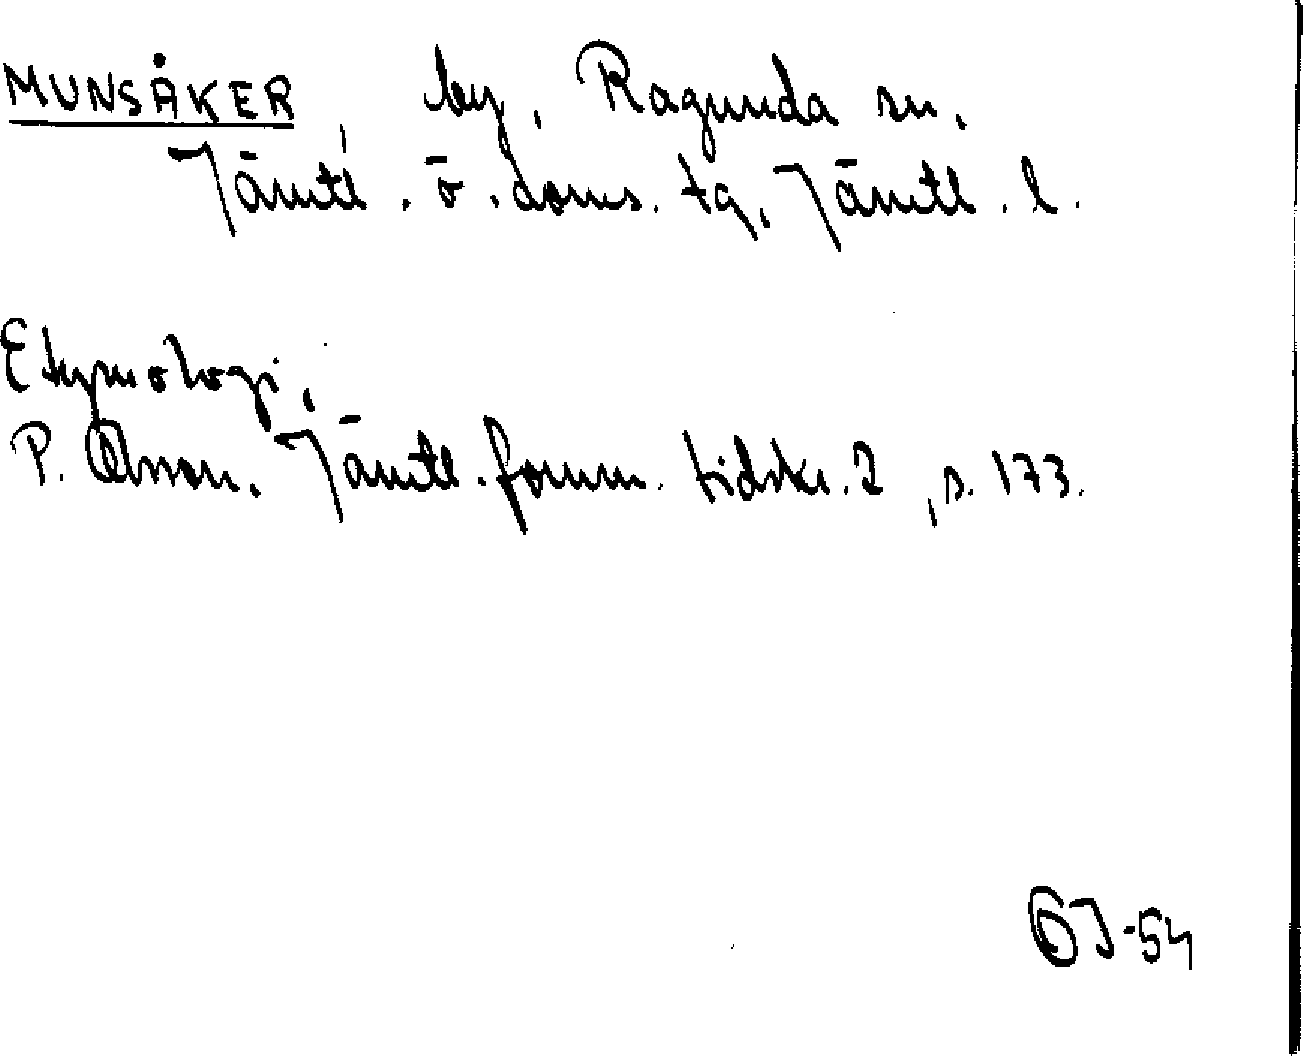 MUNSÅKER, by, Ragunda sn,
Jämtl. ö. doms. tg, Jämtl. l.
Etymologi,
P. Olsson. Jämtl. fornm. tidskr. 2, s. 173.
GJ-54